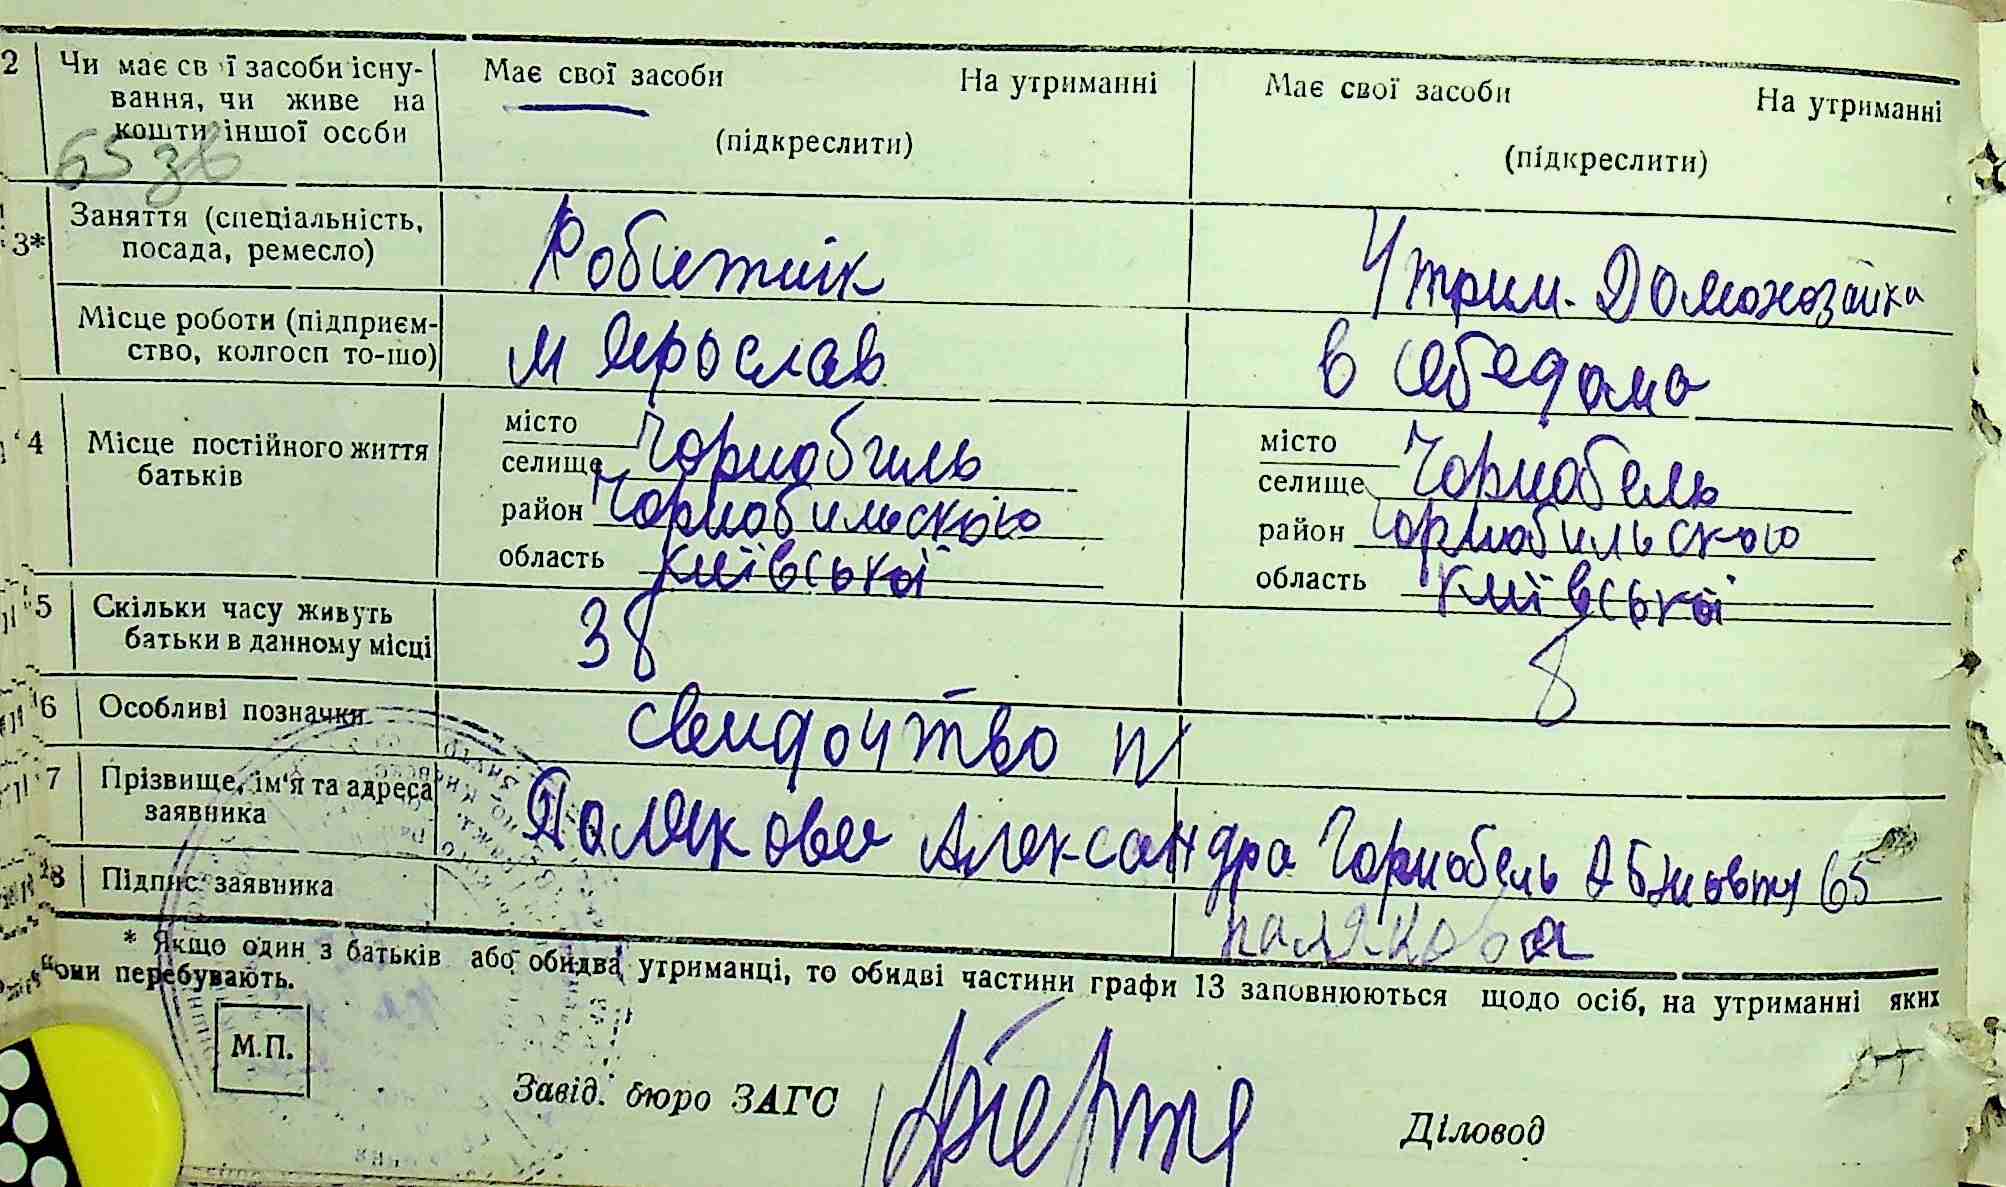 2 Чи має св ї засоби існу- Має свої засоби На утриманні Має свої засоби На утриманні
вання, чи живе на
кошти іншої особи (підкреслити) (підкреслити)
65 зв
3* Заняття (спеціальність, Робітник Утрим. Домохозяйка
посада, ремесло)
Місце роботи (підприєм- м Ярослав в себе дома
ство, колгосп то-що)
4 Місце постійного життя місто Чорнобиль місто Чорнобель
батьків селище селище
район Чорнобильскою район Чорнобильскою
область Київської область Київської
5 Скільки часу живуть 38 8
батьки в данному місці
6 Особливі позначки свидоцтво
7 Прізвище, ім'я та адреса Полякова Александра Чорнобель 65
заявника
8 Підпис заявника полякова
* Якщо один з батьків або обидва утриманці, то обидві частини графи 13 заповнюються щодо осіб, на утриманні яких
вони перебувають.
М.П.
Завід. бюро ЗАГС Діловод